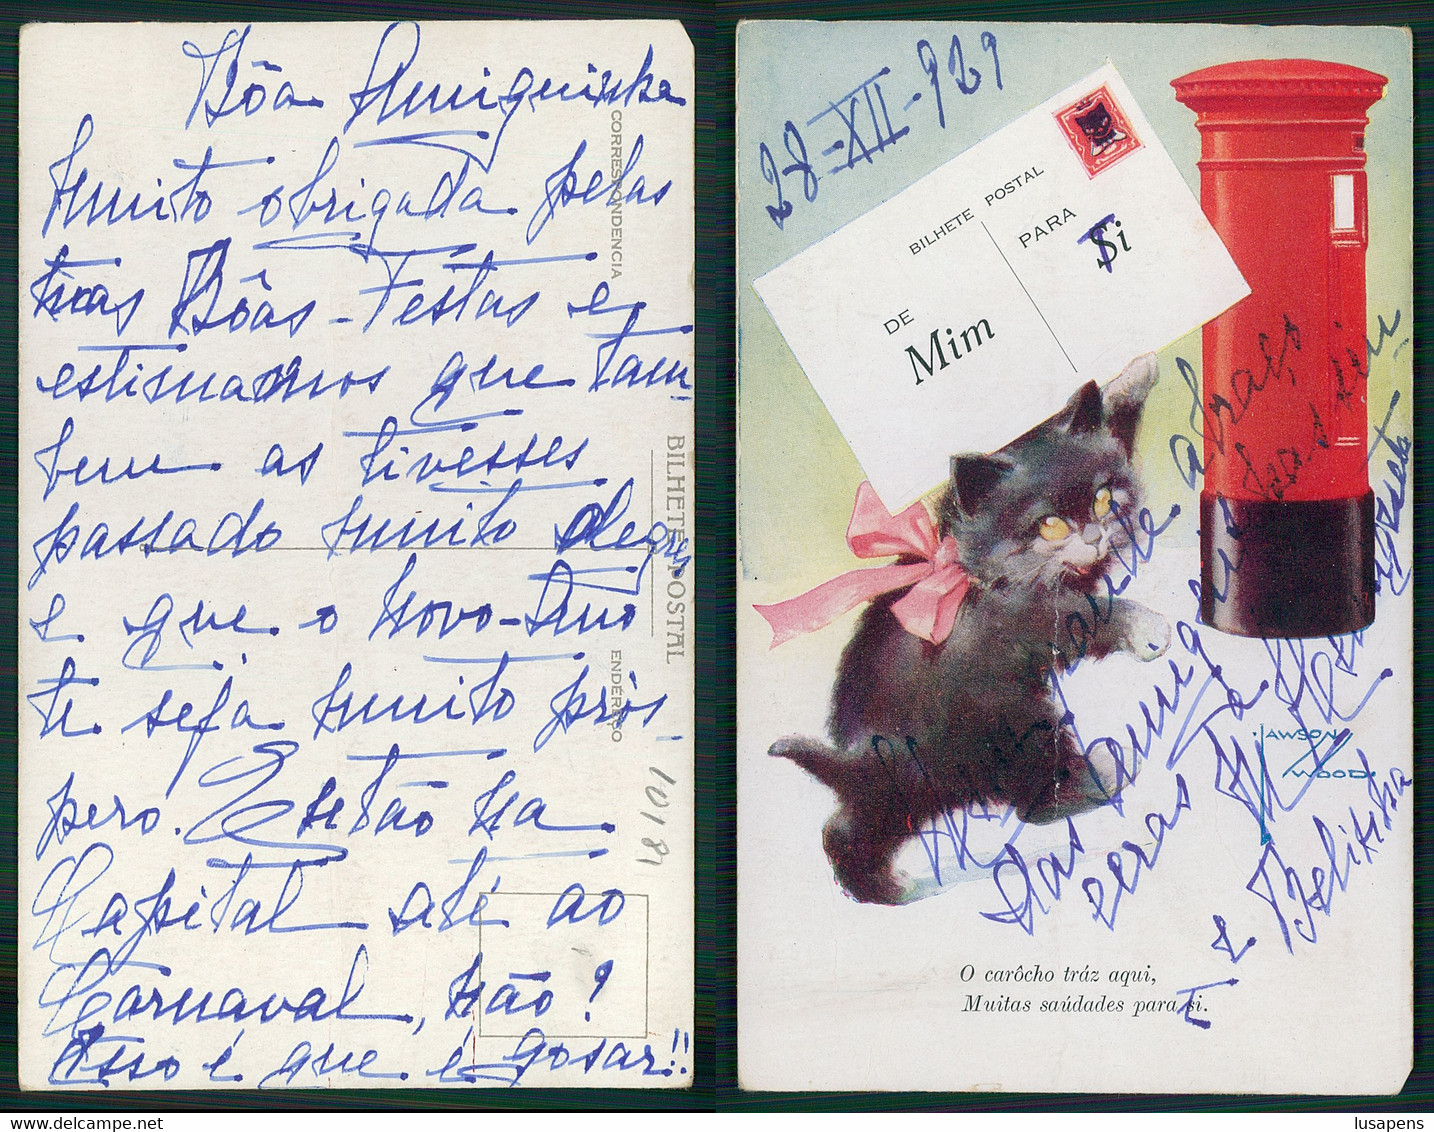 Bôa Amiguinha
Muito obrigada pelas
tuas Bôas-Festas e
estimamos que tam-
bem as tivesses
passado muito alegres
e que o Novo-Ano
te seja muito prós-
pero. Estão na
Capital até ao
Carnaval, não?
Isso é que é gosar!!
CORRESPONDENCIA
BILHETE POSTAL
ENDERÊÇO
10181
28-XII-929
BILHETE POSTAL
PARA
Ti
DE
Mim
grande abraço
das amiguinhas
e Belinha
LAWSON
WOOD.
O carôcho tráz aqui,
Muitas saúdades para ti.
lusapens